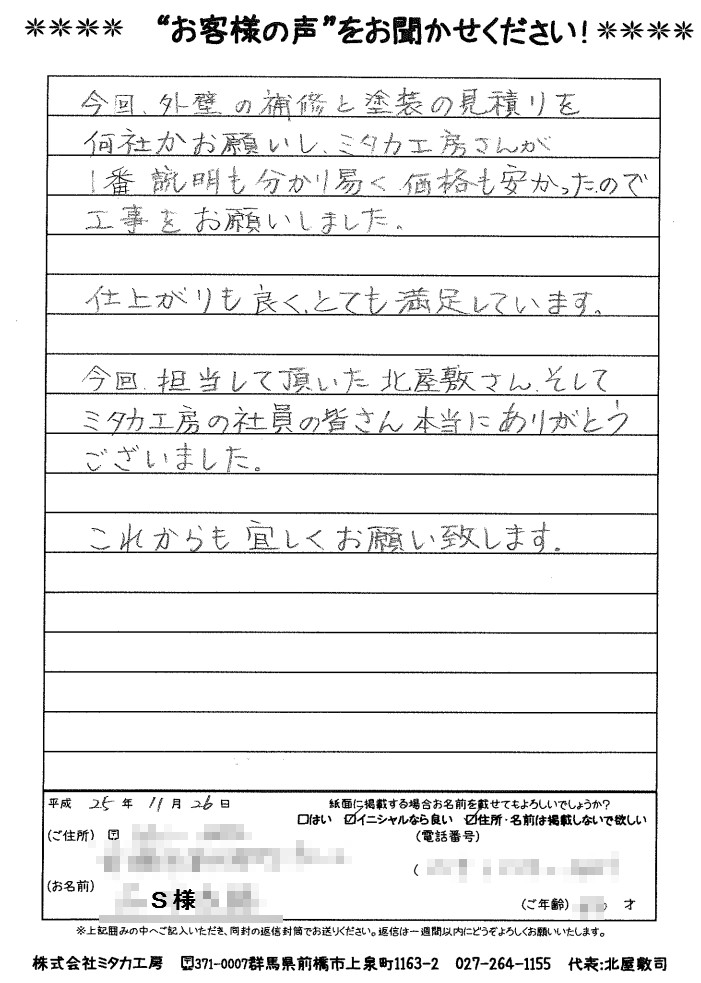 ＊＊＊＊ “お客様の声”をお聞かせください！＊＊＊＊
今回、外壁の補修と塗装の見積りを
何社かお願いし、ミタカ工房さんが
1番説明も分かり易く価格も安かったので
工事をお願いしました。
仕上がりも良く、とても満足しています。
今回、担当して頂いた北屋敷さん、そして
ミタカ工房の社員の皆さん本当にありがとう
ございました。
これからも宜しくお願い致します。
平成 25年 11月 26日
紙面に掲載する場合お名前を載せてもよろしいでしょうか？
□はい ☑イニシャルなら良い ☑住所・名前は掲載しないで欲しい
(ご住所) 〒
(電話番号)
(
(お名前)
S様
(ご年齢) 才
※上記囲みの中へご記入いただき、同封の返信封筒でお送りください。返信は一週間以内にどうぞよろしくお願いいたします。
株式会社ミタカ工房 〒371-0007群馬県前橋市上泉町1163-2 027-264-1155 代表:北屋敷司